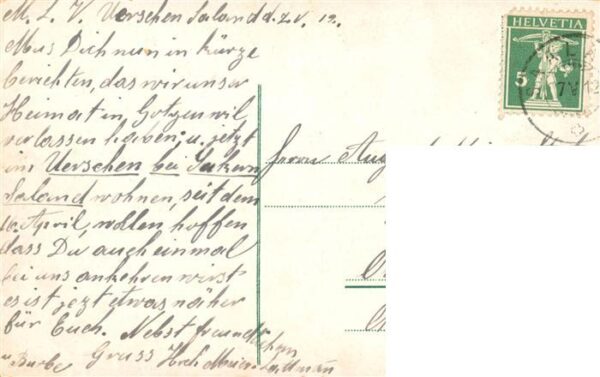 M. L. V. Uerschen Saland d. 7. V. 12.
Mus Dich nun in kürze
berichten, das wir unser
Heimat in, Gotzenwil,
verlassen haben, u. jetzt
im Uerschen bei
Saland wohnen, seit dem
10. April, wollen hoffen
dass Du auch einmal
bei uns ankehren wirst
es ist jezt etwas näher
für Euch. Nebst freundlichem
Gruss
HELVETIA
5
7 V 12
Herrn